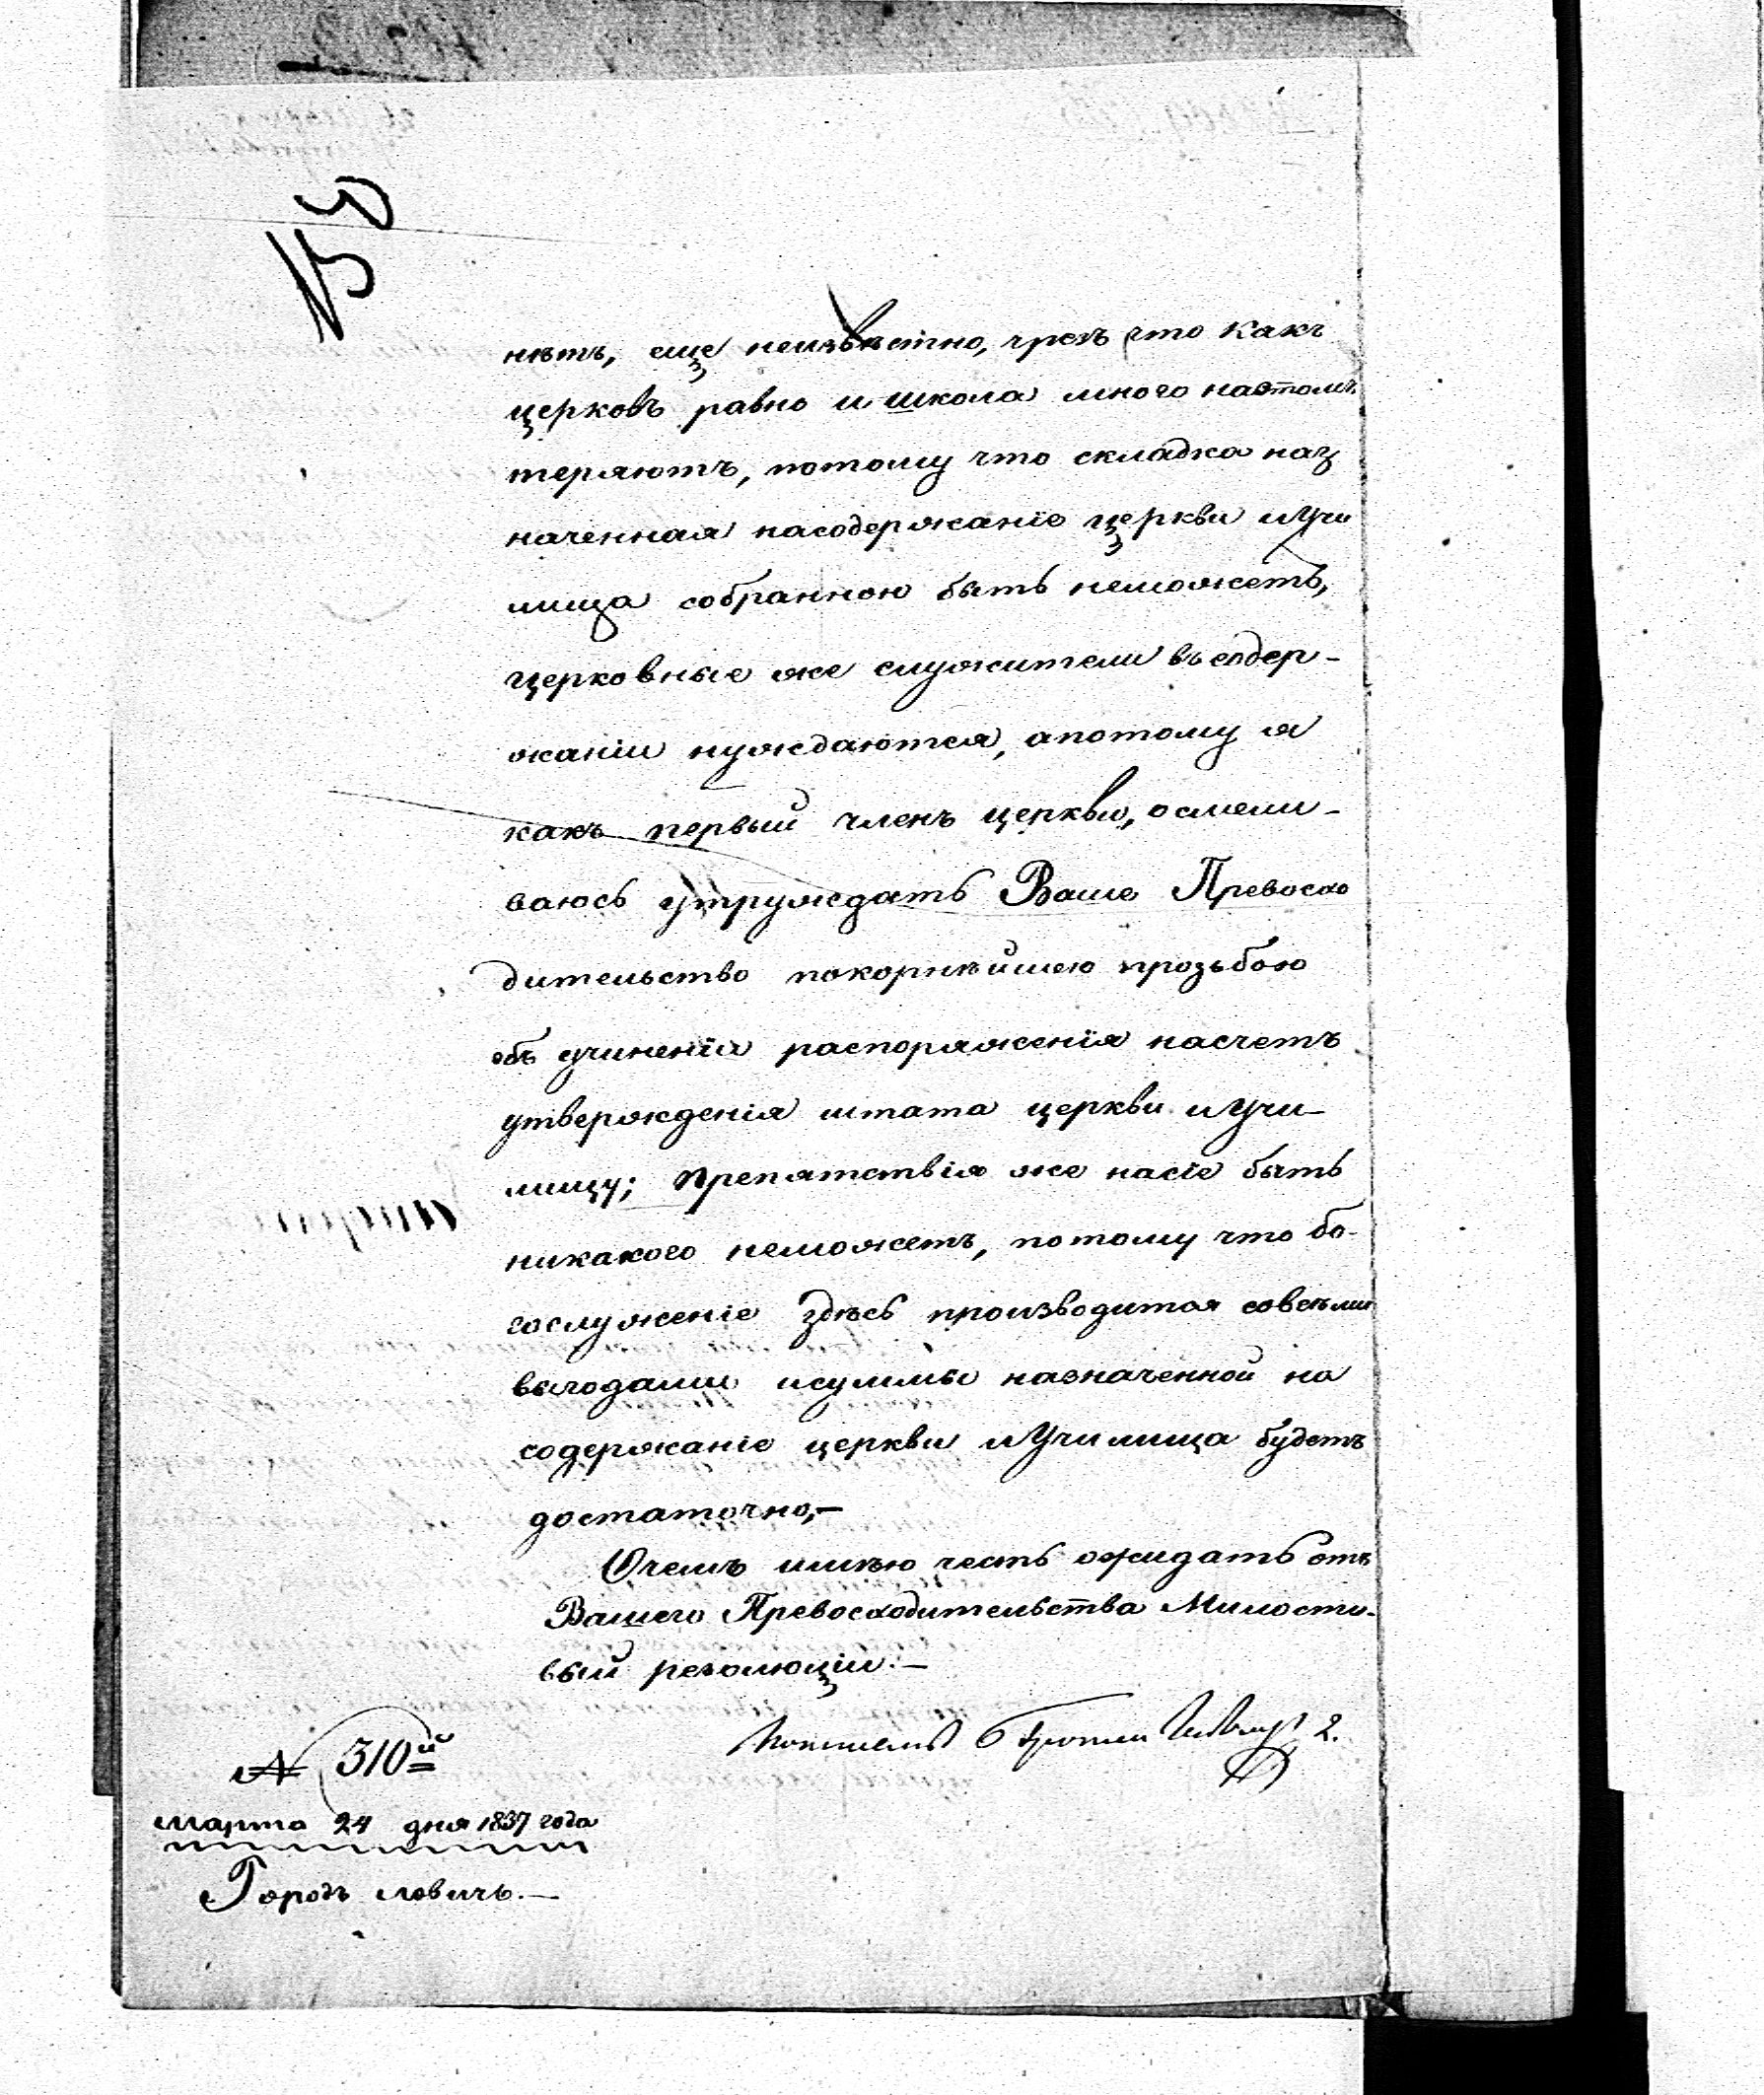 нѣтъ, еще неизвѣстно, чрезъ что какъ
церковъ равно и школа много наэтомъ
теряютъ, потому что складка наз
наченная насодержаніе церкви иУчи
лища собранною быть неможетъ,
церковные же служители въ содер-
жаніи нуждаются, апотому я
какъ первый членъ церкви, осмели-
ваюсь утруждать Ваше Превосхо
дительство покорнѣйшею прозьбою
объ учиненіи распоряженія насчетъ
утвержденія штата церкви иУчи-
лищу; препятствія же насіе быть
никакого неможетъ, потому что бо-
гослуженіе здѣсь производится совсѣми
выгодами исуммы назначенной на
содержаніе церкви иУчилища будетъ
достаточно,-
Очемъ имѣю честь ожидать отъ
Вашего Превосходительства Милости-
вый резолюціи.-
2.
№ 310й
марта 24 дня 1837 года
Городъ ловичъ.-